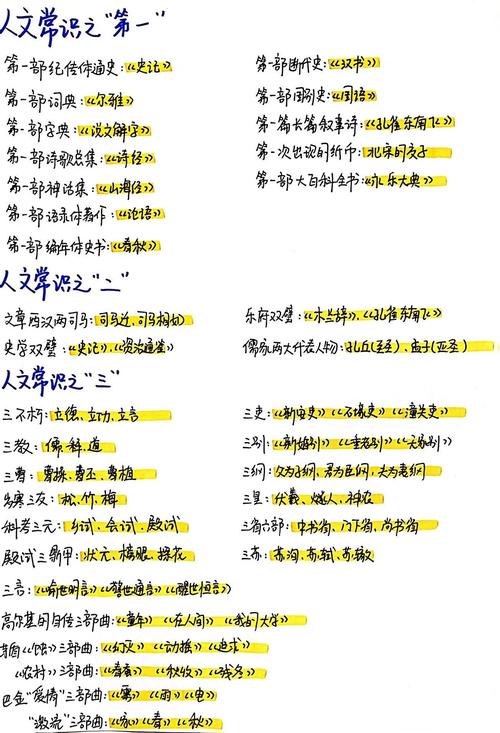 人文常识之"第一"
第一部纪传体通史:《史记》
第一部词典:《尔雅》
第一部字典:《说文解字》
第一部诗歌总集:《诗经》
第一部神话集:《山海经》
第一部语录体著作:《论语》
第一部编年体史书:《春秋》
第一部断代史:《汉书》
第一部国别史:《国语》
第一篇长篇叙事诗:《孔雀东南飞》
第一次出现的纸币:北宋的交子
第一部大百科全书:《永乐大典》
人文常识之"二"
文章西汉两司马:司马迁、司马相如
史学双璧:《史记》、《资治通鉴》
乐府双璧:《木兰辞》、《孔雀东南飞》
儒家两大代表人物:孔丘(至圣)、孟子(亚圣)
人文常识之"三"
三不朽:立德、立功、立言
三教:儒、释、道
三曹:曹操、曹丕、曹植
岁寒三友:松、竹、梅
科考三元:乡试、会试、殿试
殿试三鼎甲:状元、榜眼、探花
三吏:《新安吏》《石壕吏》《潼关吏》
三别:《新婚别》《垂老别》《无家别》
三纲:父为子纲、君为臣纲、夫为妻纲
三皇:伏羲、燧人、神农
三省六部:中书省、门下省、尚书省
三苏:苏洵、苏轼、苏辙
三言:《喻世明言》《警世通言》《醒世恒言》
高尔基的自传三部曲:《童年》《在人间》《我的大学》
茅盾《蚀》三部曲:《幻灭》《动摇》《追求》
《农村》三部曲:《春蚕》《秋收》《残冬》
巴金"爱情"三部曲:《雾》《雨》《电》
"激流"三部曲:《家》《春》《秋》